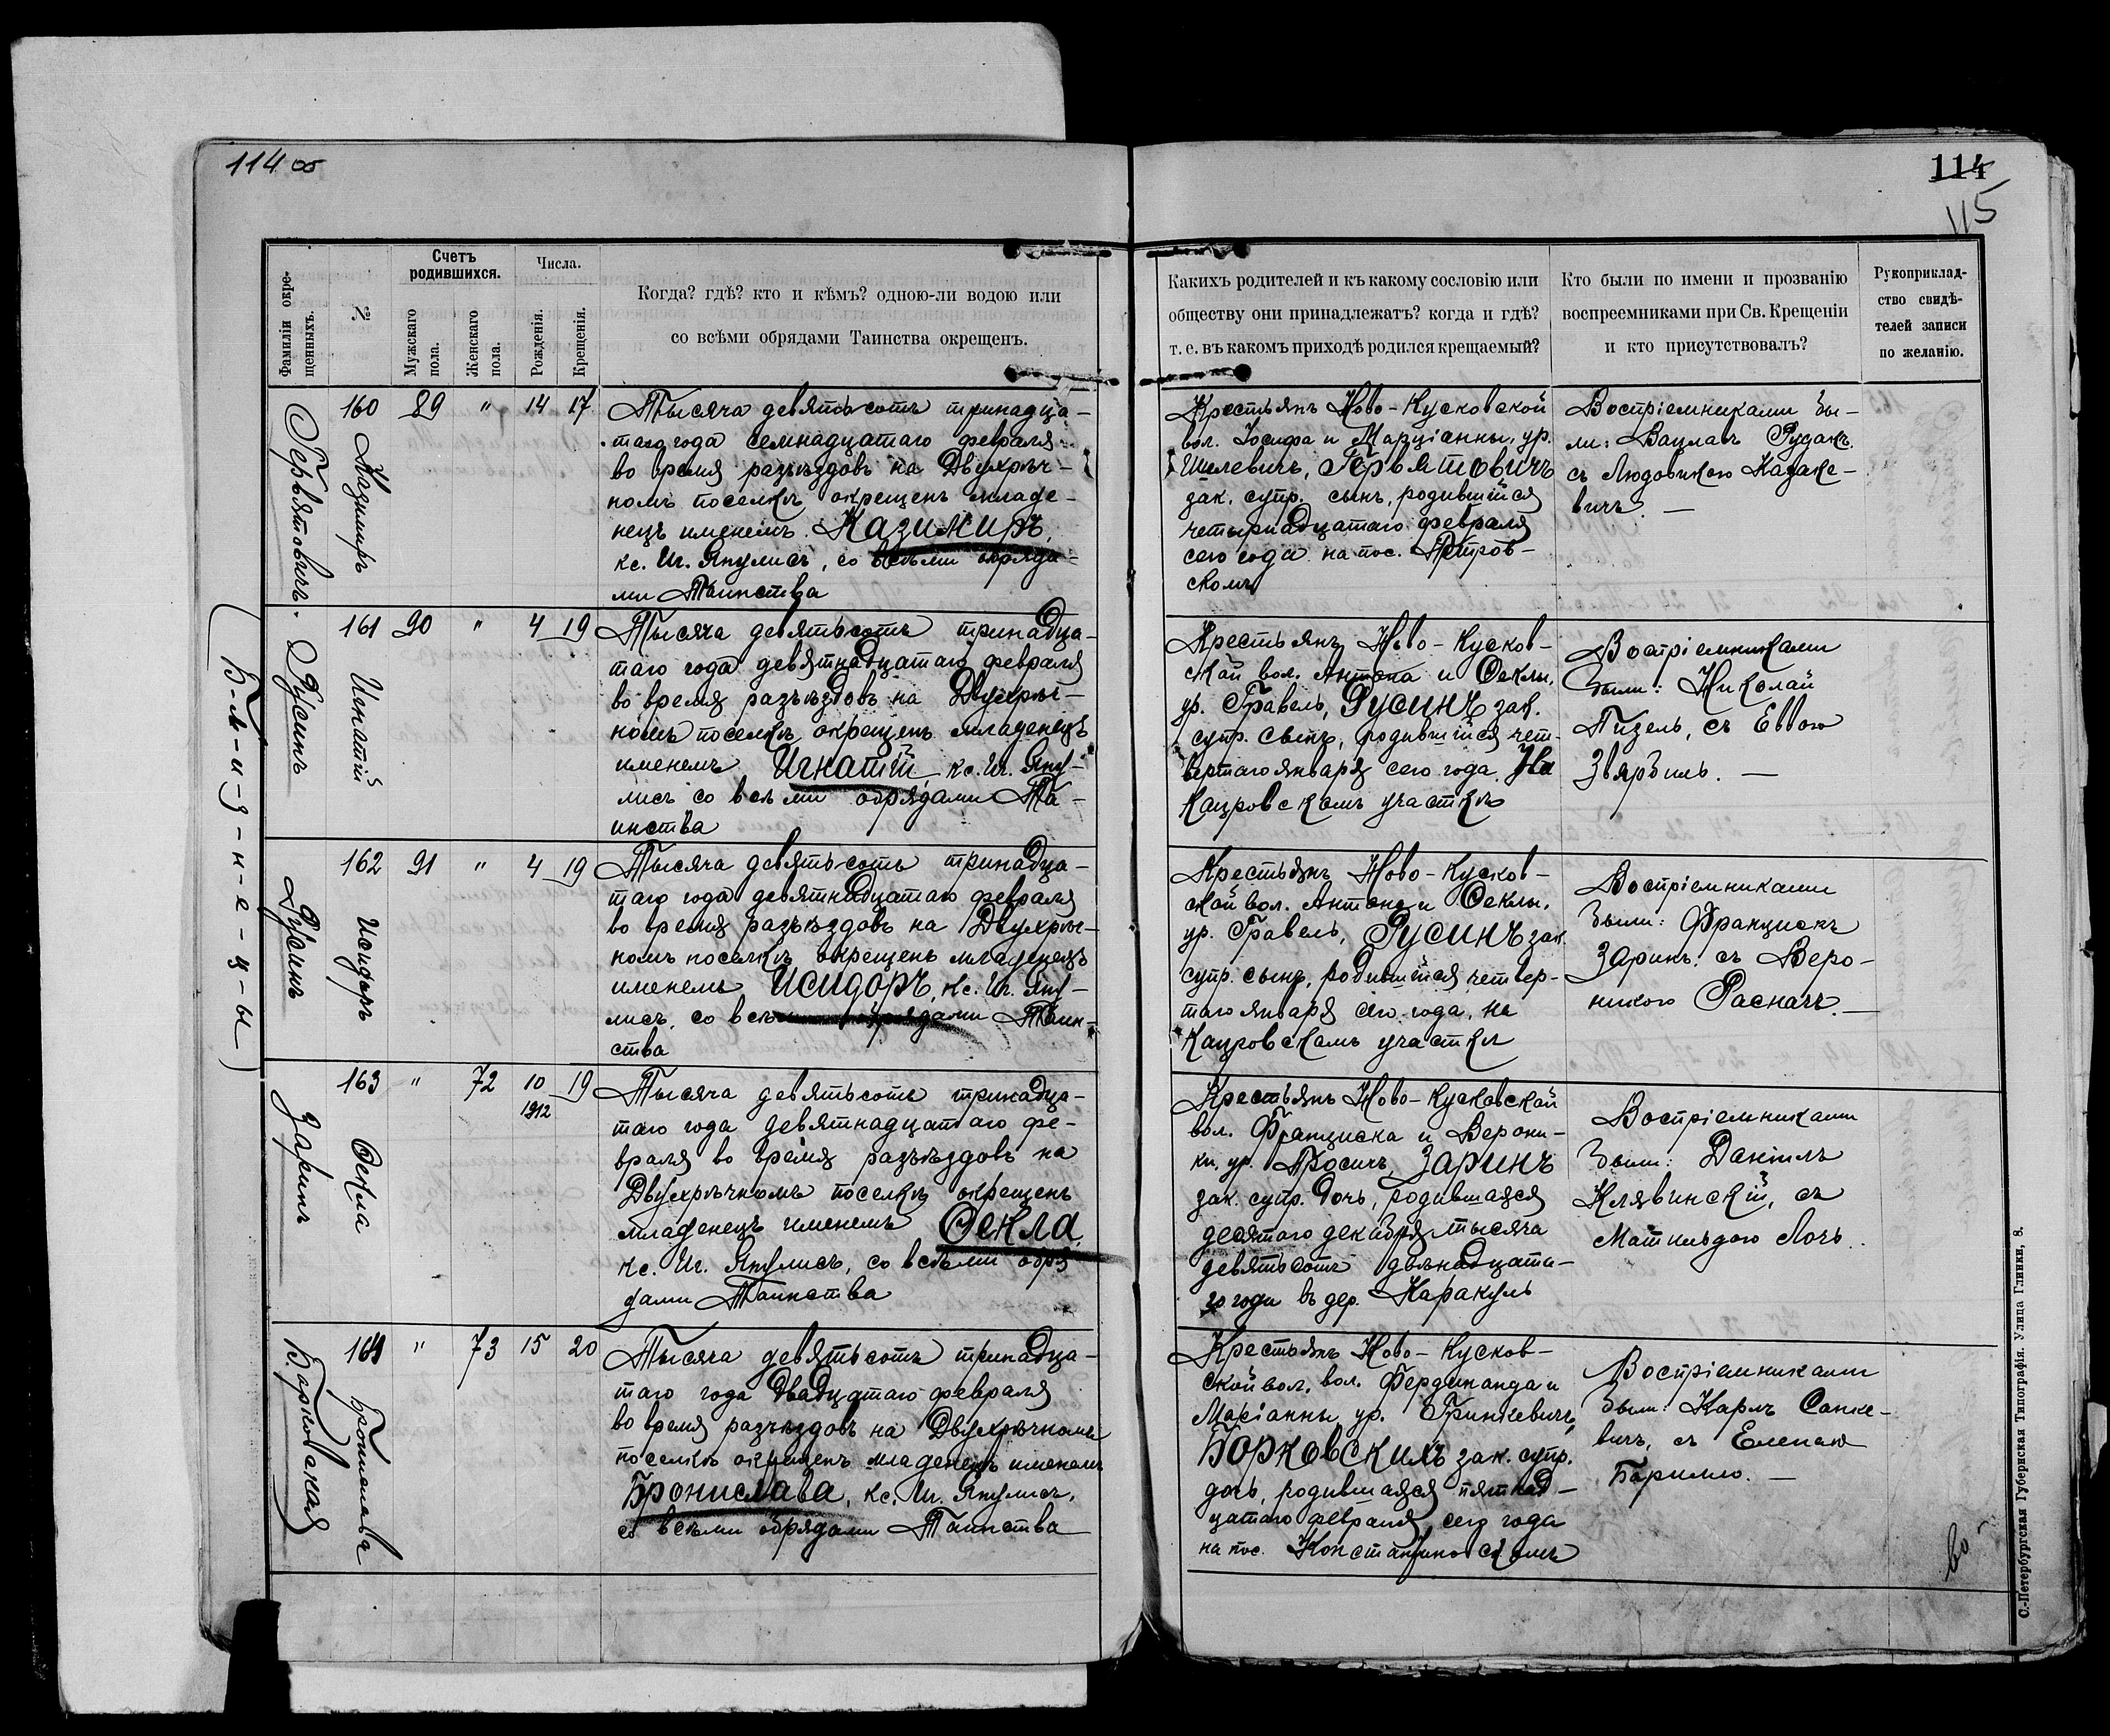 114 об
114
115
Фамиліи окре-
щенныхъ.
№
Счетъ
родившихся.
Мужскаго
пола.
Женскаго
пола.
Числа.
Рожденія.
Крещенія.
Когда? гдѣ? кто и кѣмъ? одною-ли водою или
со всѣми обрядами Таинства окрещенъ.
Каких родителей и къ какому сословію или
обществу они принадлежатъ? когда и гдѣ?
т. е. въ какомъ приходѣ родился крещаемый?
Кто были по имени и прозванію
воспреемниками при Св. Крещеніи
и кто присутствовалъ?
Рукоприклад-
ство свидѣ-
телей записи
по желанію.
Гервятовичъ.
160 Казимиръ
89 " 14 17
Тысяча девятьсотъ тринадца-
таго года семнадцатаго февраля
во время разъѣздовъ на Двухрѣч-
номъ поселкѣ окрещенъ младе-
нецъ именемъ Казимиръ,
кс. Иг. Япулисъ, со всѣми обряда-
ми Таинства
Крестьянъ Ново-Кусковской
вол. Іосифа и Марціанны, ур.
Шилевичъ, Гервятовичъ
зак. супр. сынъ, родившійся
четырнадцатаго февраля
сего года на пос. Петров-
скомъ
Воспріемниками бы-
ли: Вацлавъ Рудакъ
съ Людовикою Казаке-
вичъ. —
Б-л-и-з-н-е-ц-ы
Русинъ
161 Игнатій
90 " 4 19
Тысяча девятьсотъ тринадца-
таго года девятнадцатаго февраля
во время разъѣздовъ на Двухрѣч-
номъ поселкѣ окрещенъ младенецъ
именемъ Игнатій кс. Иг. Япу-
лисъ со всѣми обрядами Та-
инства
Крестьянъ Ново-Кусков-
ской вол. Антона и Ѳеклы,
ур. Гравель, Русинъ зак.
супр. сынъ, родившійся чет-
вертаго января сего года. На
Кацровскомъ участкѣ
Воспріемниками
были: Николай
Пизель, съ Еввою
Звярбиль. —
Русинъ
162 Исидоръ
91 " 4 19
Тысяча девятьсотъ тринадца-
таго года девятнадцатаго февраля
во время разъѣздовъ на Двухрѣч-
номъ поселкѣ окрещенъ младенецъ
именемъ Исидоръ, кс. Иг. Япу-
лисъ, со всѣми обрядами Таин-
ства
Крестьянъ Ново-Кусков-
ской вол. Антона и Ѳеклы,
ур. Гравель, Русинъ зак.
супр. сынъ, родившійся четвер-
таго января сего года, на
Кацровскомъ участкѣ
Воспріемниками
были: Францискъ
Заринъ съ Веро-
никою Расначъ. —
Заринъ
163 Ѳекла
" 72 10 19
1912
Тысяча девятьсотъ тринадца-
таго года девятнадцатаго фе-
враля во время разъѣздовъ на
Двухрѣчномъ поселкѣ окрещенъ
младенецъ именемъ Ѳекла,
кс. Иг. Япулисъ, со всѣми обря
дами Таинства
Крестьянъ Ново-Кусковской
вол. Франциска и Верони-
ки, ур. Просичъ, Заринъ
зак. супр. дочь, родившаяся
десятаго декабря тысяча
девятьсотъ двѣнадцата-
го года въ дер. Каракуль
Воспріемниками
были: Даніилъ
Клявинскій, съ
Матильдою Лочь.
Борковская
164 Бронислава
" 73 15 20
Тысяча девятьсотъ тринадца-
таго года двадцатаго февраля
во время разъѣздовъ на Двухрѣчномъ
поселкѣ окрещенъ младенецъ именемъ
Бронислава, кс. Иг. Япулисъ,
со всѣми обрядами Таинства
Крестьянъ Ново-Кусков-
ской вол. вол. Фердинанда и
Маріанны, ур. Гринкевичъ,
Борковскихъ зак. супр.
дочь, родившаяся пятнад-
цатаго февраля сего года
на пос. Константиновскомъ
Воспріемниками
были: Карлъ Санке-
вичъ, съ Еленою
Барилло. —
во
С.-Петербургская Губернская Типографія. Улица Глинки, 8.